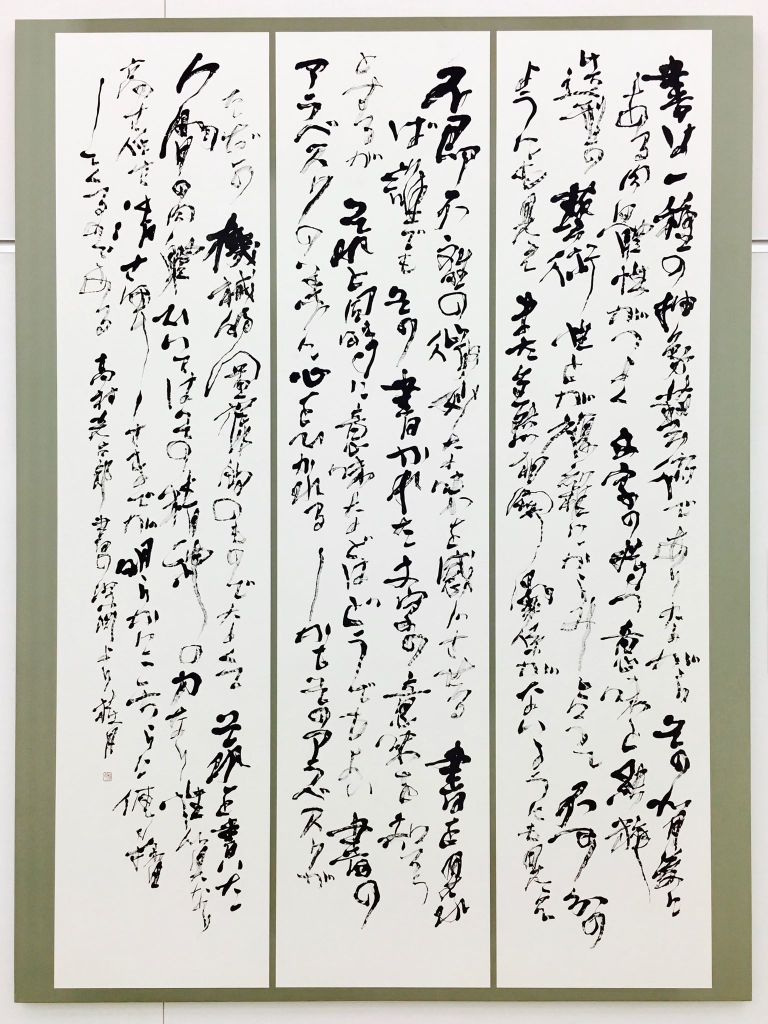 書は一種の抽象藝術でありながらその背後に
ある肉體性がつよく文字の持つ意味と純粋
造型の藝術性とが複雑にからみ合って不可分の
ようにも見え又全然相関関係がないようにも見え
不即不離の微妙な味を感じさせる書を見れ
ば誰でもその書かれた文字の意味を知ろう
とするがそれと同時に意味などはどうでもよい書の
アラベスクの美に心をひかれるしかもそのアラベスクが
ただの機械的図様的のものでなくそれを書いた
人間の肉體ひいてはその精神の力なり性質なり
高さ低さ清さ卑しさまでが明らかにこちらに傳播
してくるのである 高村光太郎 書の深淵より